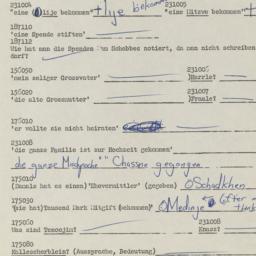 231004 231005
'eine Olije bekommen' tlje bekom 'eine Mitzve bekommen'
187110
'eine Spende stiften'
187112
Wie hat man die Spenden am Schabbes notiert, da man nicht schreiben
darf?
156050 231006
'mein seliger Grossvater' Harrle?
156020 231007
'die alte Grossmutter' Fraale?
176010
'er wollte sie nicht heiraten'
231008
'die ganze Familie ist zur Hochzeit gekommen'
die ganze Mischpoche Chassne gegangen
175010
(Damals hat es einen) 'Ehevermittler' (gegeben) Schadkhen
175030
'(sie hat)Tausend Mark Mitgift (bekommen)' Medinje
175060 231008
Was sind Tsnoojim? Knass?
175080
(Aussprache, Bedeutung)